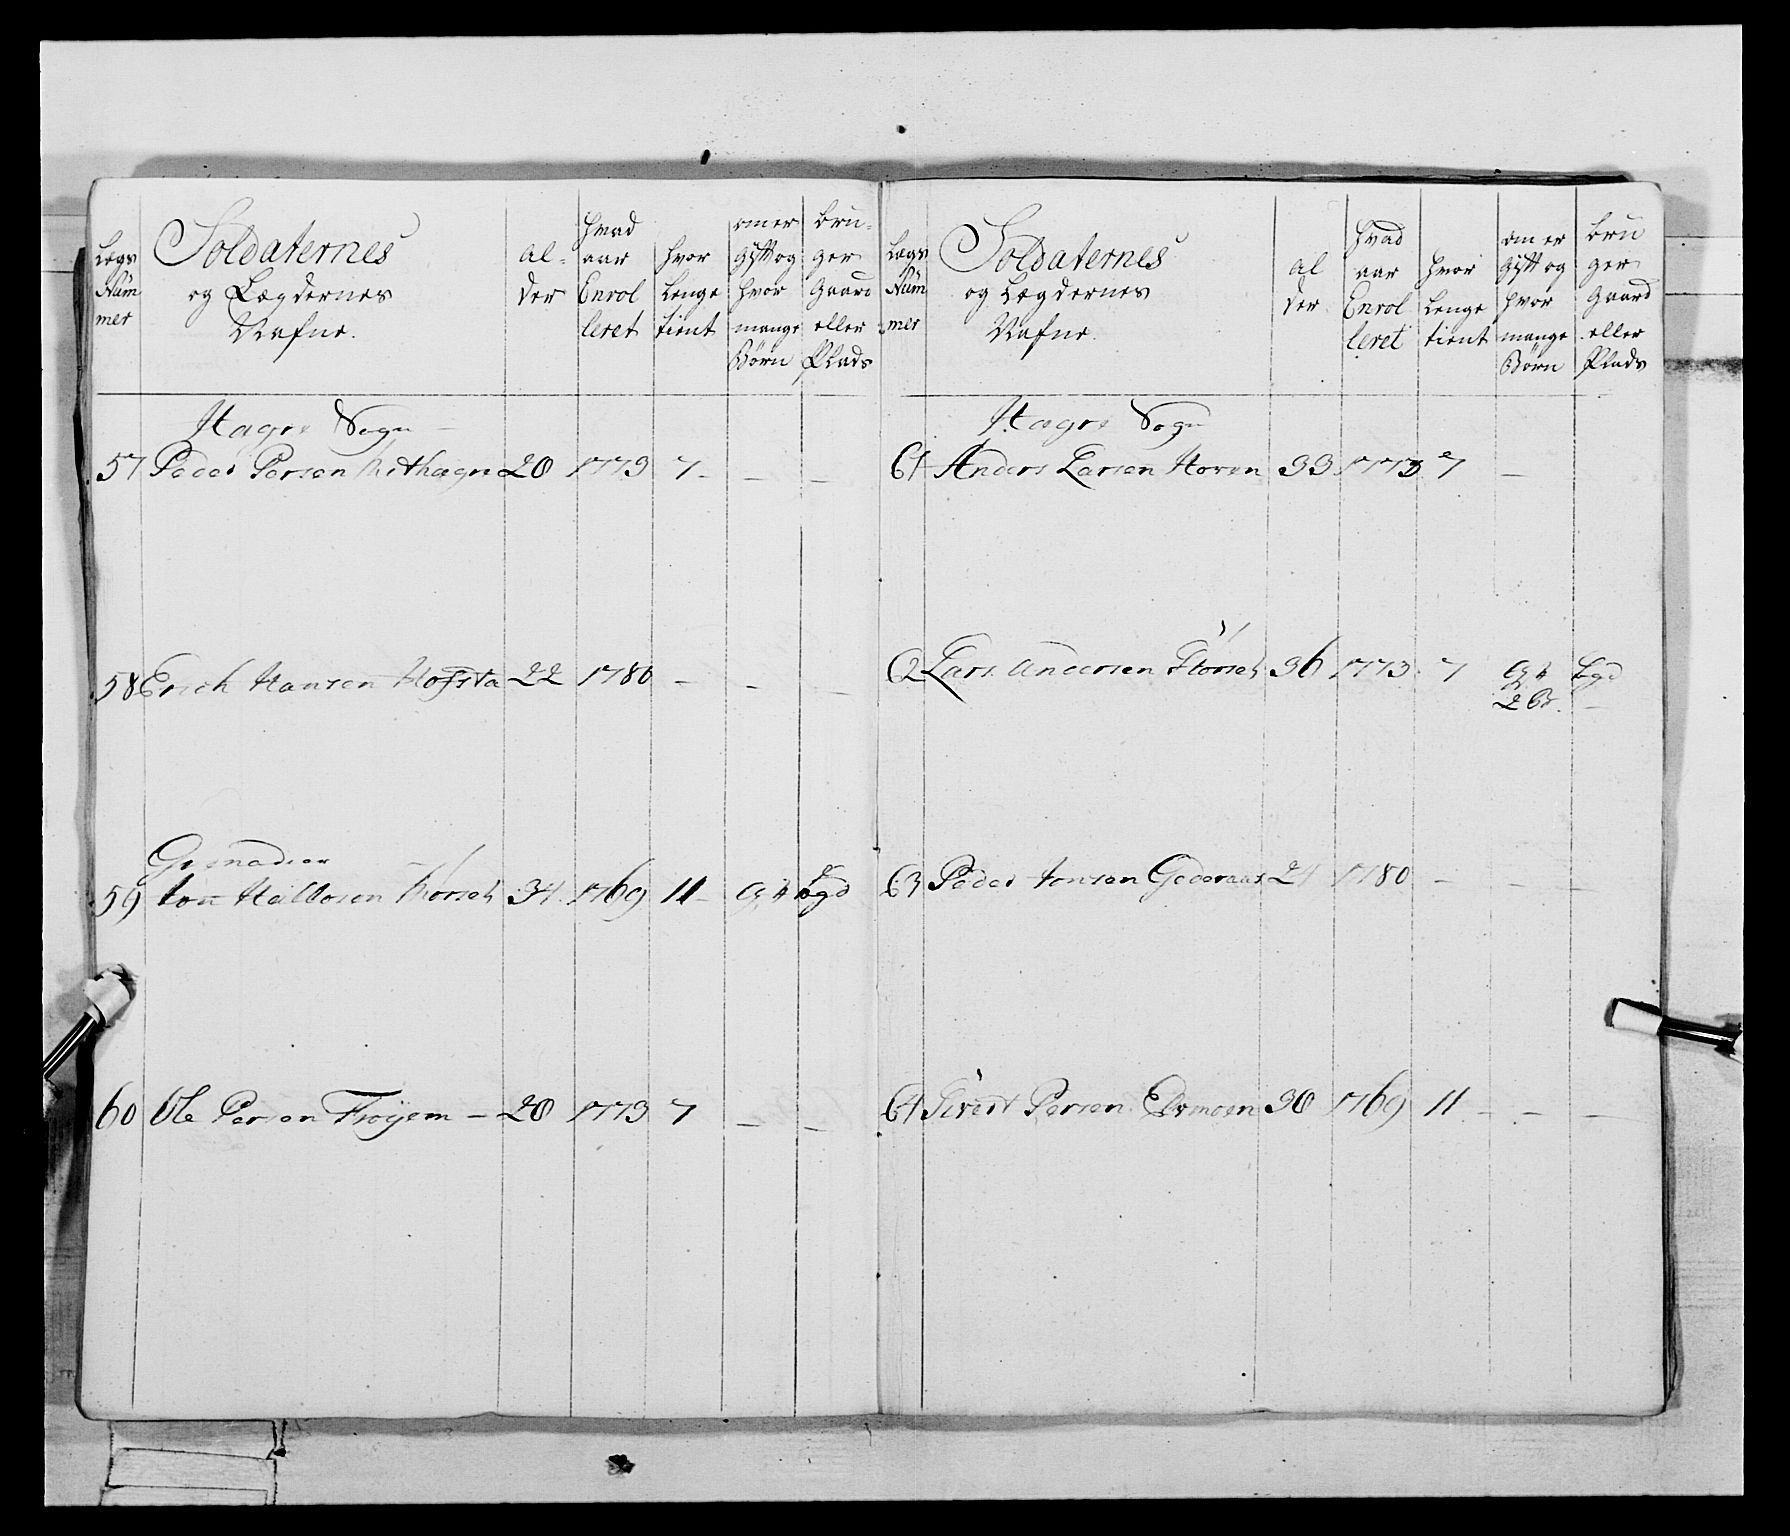 Lægs Nüm mer
Soldaternes og Lægdernes Nafne.
al- der
hvad aar Enrol leret
hvor Lenge tient
om er gift og hvor mange Børn
bru- ger Gaard eller Plads
Hagre Sogn
57 Peder Persen 28 1773 7 - - -
58 Erich Hansen Hofsta 22 1780 - - -
Grenadeer
59 Jon Halvorsen 34. 1769 11 - G: Lgd
60 Ole Persen Frøyem - 28 1773 7 - -
Lægs Nüm mer
Soldaternes og Lægdernes Nafne.
al der
hvad aar Enrol leret
hvor Lenge tient
om er gift og hvor mange Børn
bru ger Gaard eller Plads
Hagre Sogn
61 Anders Larsen Hoven 33 1773 7 -
62 Lars Andersen 36 1773. 7 G: Lgd
2 B. -
63 Peder Jonsen Gederaas 21 1780 - - -
64 Sivert Persen Elvmoen 30 1769 11 - - -